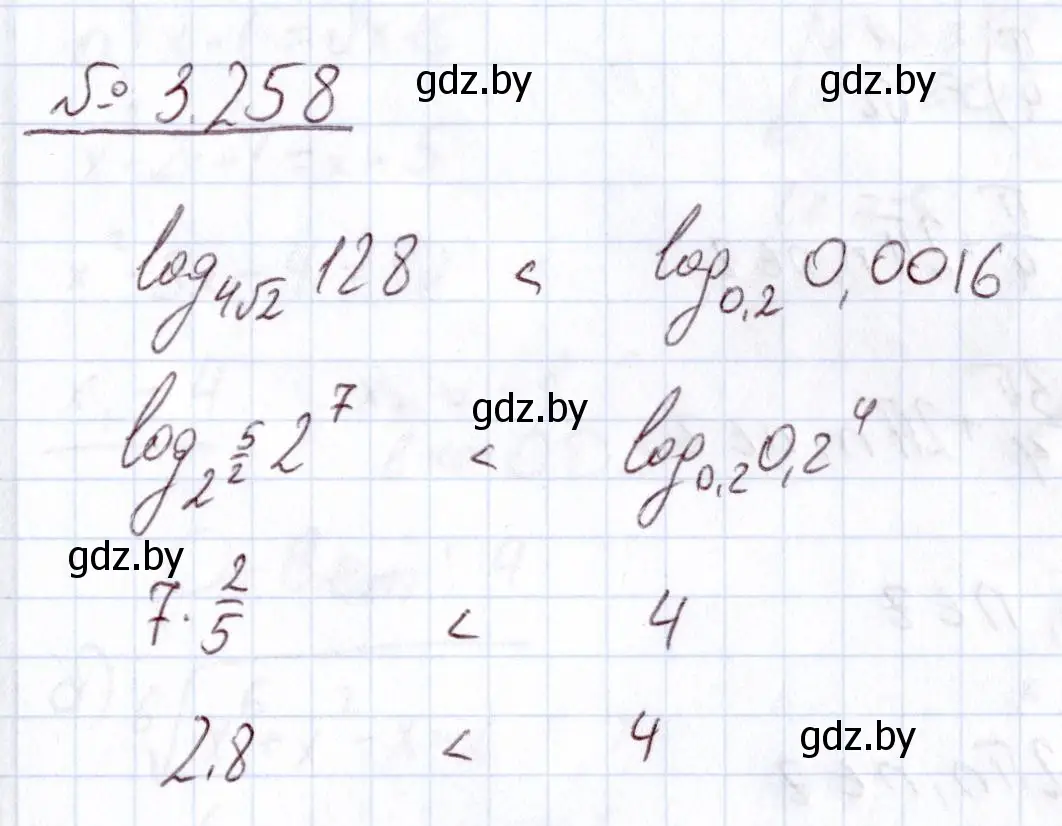 № 3.258 gdz.by gdz.by
log_{4√2} 128 < log_{0,2} 0,0016
gdz.by
log_{2^{5/2}} 2^7 < log_{0,2} 0,2^4
gdz.by
7 · 2/5 < 4
2,8 < 4 gdz.by